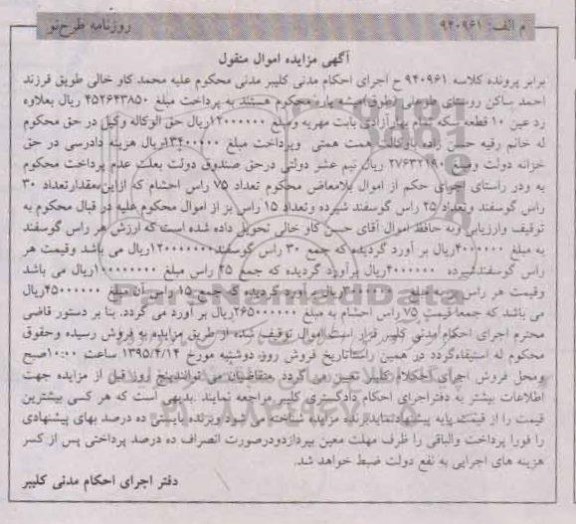 م الف: ۹۴۰۹۶۱
روزنامه طرح‌نو
آگهی مزایده اموال منقول
برابر پرونده کلاسه ۹۴۰۹۶۱ ح اجرای احکام مدنی کلیبر مدنی محکوم علیه محمد کاو خالی طویق فرزند
احمد ساکن روستای طوعلی (طوق) پیشه یار محکوم هستند به پرداخت مبلغ ۴۵۲۶۴۳۸۵۰ ریال بعلاوه
رد عین ۱۰ قطعه سکه تمام بهارآزادی بابت مهریه ومبلغ ۱۲۰۰۰۰۰۰ریال حق الوکاله وکیل در حق محکوم
له خانم رقیه حسن زاده باوکالت همت همتی وپرداخت مبلغ ۱۳۴۰۰۰۰۰ریال هزینه دادرسی در حق
خزانه دولت ومبلغ ۲۷۶۳۲۱۹۰ ریال نیم عشر دولتی درحق صندوق دولت بعلت عدم پرداخت محکوم
به ودر راستای اجرای حکم از اموال بلامعارض محکوم تعداد ۷۵ راس احشام که ازاین‌مقدارتعداد ۳۰
راس گوسفند وتعداد ۲۵ راس گوسفند شیرده وتعداد ۱۵ راس بز از اموال محکوم علیه در قبال محکوم به
توقیف وارزیابی وبه حافظ اموال آقای حسن کاو خالی تحویل داده شده است که ارزش هر راس گوسفند
به مبلغ ۴۰۰۰۰۰۰ریال بر آورد گردیده که جمع ۳۰ راس گوسفند۱۲۰۰۰۰۰۰۰ریال می باشد وقیمت هر
راس گوسفندشیرده ۴۰۰۰۰۰۰ریال برآورد گردیده که جمع ۲۵ راس مبلغ ۱۰۰۰۰۰۰۰۰ریال می باشد
وقیمت هر راس بز به مبلغ ۳۰۰۰۰۰۰ریال برآورد گردیده که جمع ۱۵ راس آن مبلغ ۴۵۰۰۰۰۰۰ریال
می باشد که جمعا قیمت ۷۵ راس احشام به مبلغ ۲۶۵۰۰۰۰۰۰ریال بر آورد می گردد. بنا بر دستور قاضی
محترم اجرای احکام مدنی کلیبر قرار است اموال توقیف شده از طریق مزایده به فروش رسیده وحقوق
محکوم له استیفاءگردد در همین راستاتاریخ فروش روز، دوشنبه مورخ ۱۳۹۵/۴/۱۴ ساعت ۱۰:۰۰صبح
ومحل فروش اجرای احکام کلیبر تعین می گردد .متقاضیان می توانندپنج روز قبل از مزایده جهت
اطلاعات بیشتر به دفتراجرای احکام دادگستری کلیبر مراجعه نمایند .بدیهی است که هر کسی بیشترین
قیمت را از قیمت پایه پیشنهادنماید،برنده مزایده شناخته می شود وبرنده بایستی ده درصد بهای پیشنهادی
را فورا پرداخت والباقی را ظرف مهلت معین بپردازدودرصورت انصراف ده درصد پرداختی پس از کسر
هزینه های اجرایی به نفع دولت ضبط خواهد شد.
دفتر اجرای احکام مدنی کلیبر
ParsNamadData